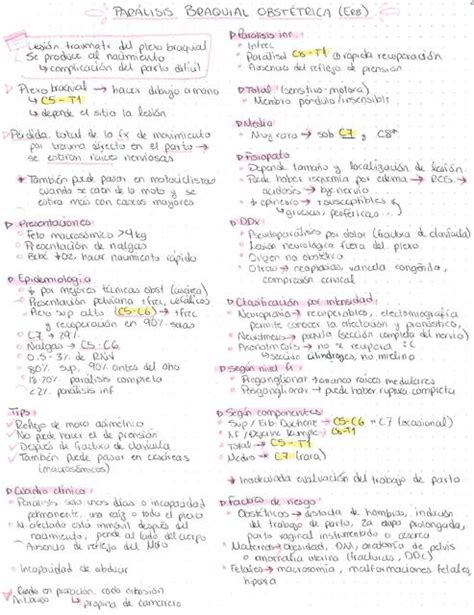 PARÁLISIS BRAQUIAL OBSTÉTRICA (ERB)
Lesión traumát. del plexo braquial
Se produce al nacimiento
↳ complicación del parto difícil
Plexo braquial → hacer dibujo a mano
↳ C5 - T1
↳ depende el sitio la lesión
Pérdida total de la fx de movimiento
por trauma directo en el parto →
se estiran raíces nerviosas
* También puede pasar en motociclistas
cuando se caen de la moto y se
estira más con cascos mayores
Presentaciones
Feto macrosómico >4kg
Presentación de nalgas
Bebé hace nacimiento rápido
Epidemiología
↓ por mejores técnicas obst (cesárea)
Presentación pelviana +frec, cefálicos
(C5-C6) → +frec
y recuperación en 90% casos
C7 → 29%
Nalgas → C5-C6
0.5 - 3% de RNV
80% sup, 90% antes del año
18-20% parálisis completa
<2% parálisis inf
Tips
Reflejo de moro asimétrico
No puede hacer el de prensión
Después de fractura de clavícula
También puede pasar en cesáreas
(macrosómicos)
Cuadro clínico
Parálisis solo unos días o incapacidad
permanente, una raíz o todo el plexo
M. afectado está inmóvil después del
nacimiento, pende al lado del cuerpo
Ausencia de reflejo del Moro
Incapacidad de abducir
Codo en pronación
↳ propina de camarero
Parálisis inf
Infrec
Parálisis C8-T1 rápida recuperación
Ausencia del reflejo de prensión
Total (sensitivo-motora)
Miembro péndulo/insensible
Media
Muy rara → sob C7 y C8*
Fisiopato
Depende tamaño y localización de lesión.
Puede haber isquemia por edema → PCG →
acidosis → bg. nervio
+ epineuro → +susceptibles
↳ gruesas, periféricas...)
DDx
Pseudoparálisis por dolor (fractura de clavícula)
Lesión neurológica fuera del plexo
Origen no obstétrico
Otras → neoplasias, varicela congénita,
compresión cervical
Clasificación por intensidad
Neuropraxia → recuperables, electromiografía
permite conocer la afectación y pronóstico,
(sección completa del nervio)
no se recupera
↳ sección cilindroejes, no mielina
Según nivel
Preganglionar → arranca raíces medulares
Posganglionar → puede haber ruptura completa
Según componentes
Sup / Erb-Duchenne → C5-C6 ± C7 (ocasional)
Inf / Dejerine Klumpke → C8-T1
Total → C5 - T1
Medio → C7 (rara)
* Inadecuada evaluación del trabajo de parto
Factores de riesgo
Obstétricos → distocia de hombros, inducción
del trabajo de parto, 2a etapa prolongada,
parto vaginal instrumentado o cesárea
Maternos → obesidad, DM, anatomía de pelvis
o anomalía uterina (fracturas, DDC)
Fetales → macrosomía, malformaciones fetales,
hipoxia